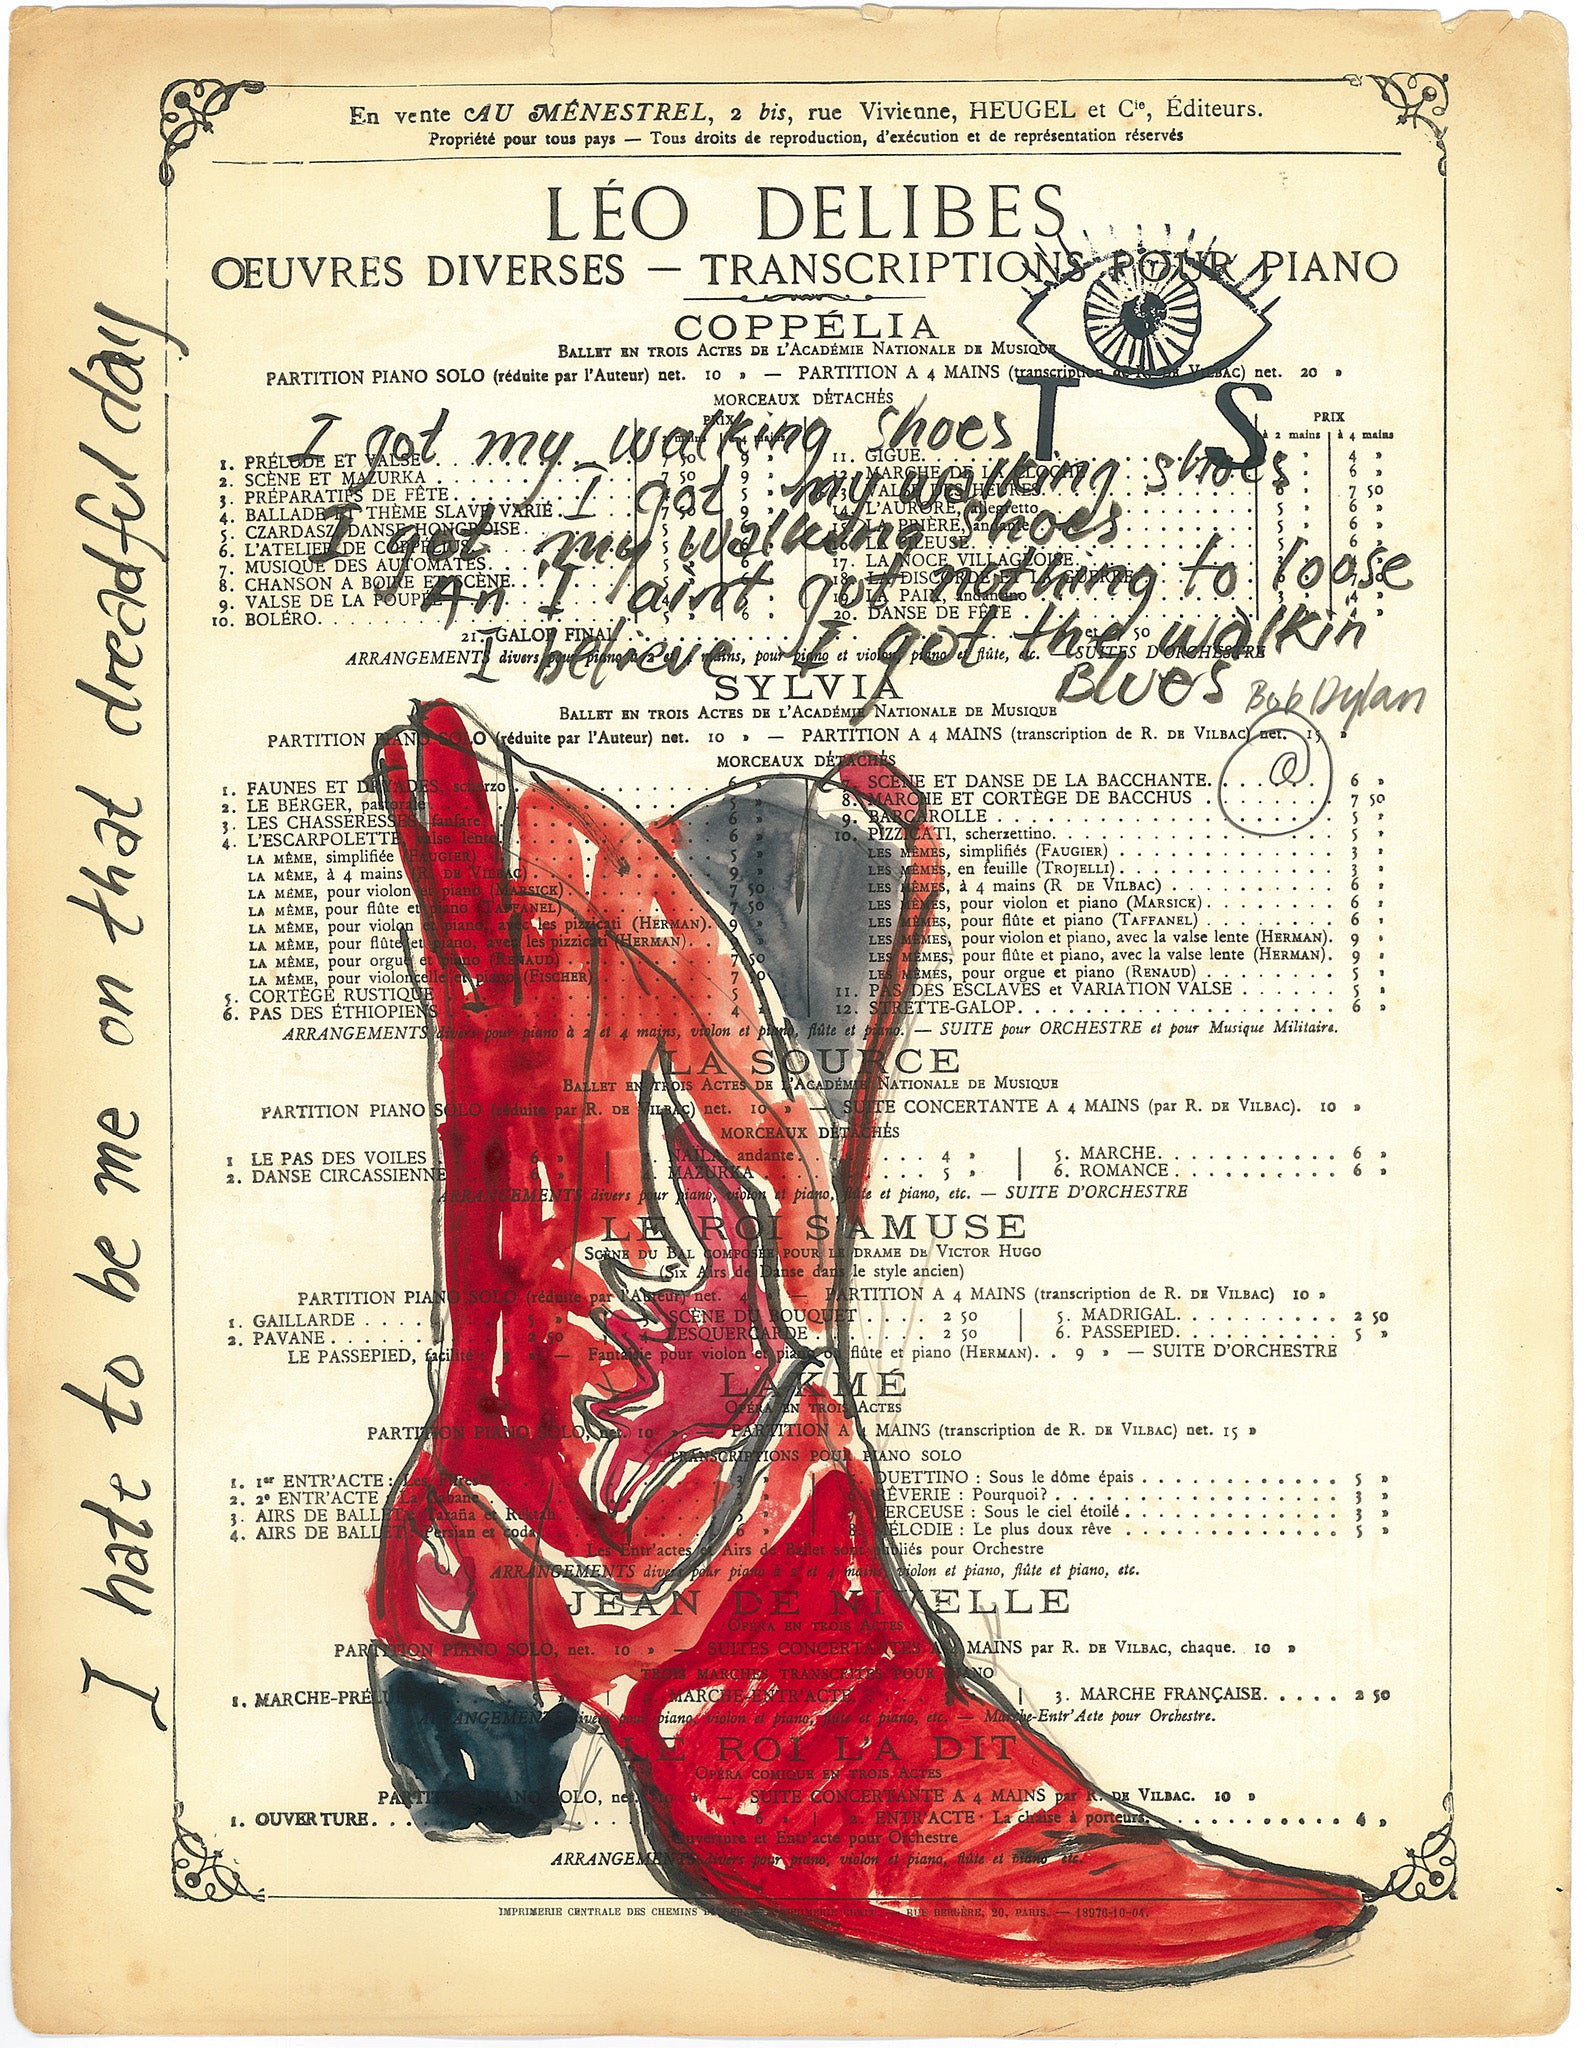 En vente AU MÉNESTREL, 2 bis, rue Vivienne, HEUGEL et Cie, Éditeurs.
Propriété pour tous pays — Tous droits de reproduction, d'exécution et de représentation réservés
LÉO DELIBES
OEUVRES DIVERSES — TRANSCRIPTIONS POUR PIANO
COPPÉLIA
BALLET EN TROIS ACTES DE L'ACADÉMIE NATIONALE DE MUSIQUE
PARTITION PIANO SOLO (réduite par l'Auteur) net. 10 » — PARTITION A 4 MAINS (transcription de R. DE VILBAC) net. 20 »
T S
MORCEAUX DÉTACHÉS
PRIX
PRIX
à 2 mains à 4 mains
I got my walking shoes
I got my walking shoes
I got my walking shoes
An I aint got nothing to loose
I believe I got the walkin
Blues Bob Dylan
1. PRÉLUDE ET VALSE 7 50 9 »
2. SCÈNE ET MAZURKA
3. PRÉPARATIFS DE FÊTE
4. BALLADE ET THÈME SLAVE VARIÉ
5. CZARDASZ, DANSE HONGROISE
6. L'ATELIER DE COPPÉLIUS
7. MUSIQUE DES AUTOMATES
8. CHANSON A BOIRE ET SCÈNE
9. VALSE DE LA POUPÉE
10. BOLÉRO
11. GIGUE 4 »
12. MARCHE DE LA CLOCHE 6 »
13. VALSE DES HEURES 7 50
14. L'AURORE, allegretto 6 »
15. LA PRIÈRE, andante 6 »
17. LA NOCE VILLAGEOISE
18. LA DISCORDE ET LA GUERRE
19. LA PAIX, andantino
20. DANSE DE FÊTE
21. GALOP FINAL
ARRANGEMENTS divers pour piano à 2 et 4 mains, pour piano et violon, piano et flûte, etc. — SUITES D'ORCHESTRE
SYLVIA
BALLET EN TROIS ACTES DE L'ACADÉMIE NATIONALE DE MUSIQUE
PARTITION PIANO SOLO (réduite par l'Auteur) net. 10 » — PARTITION A 4 MAINS (transcription de R. DE VILBAC) net. 15 »
@
MORCEAUX DÉTACHÉS
1. FAUNES ET DRYADES, scherzo 6 »
2. LE BERGER, pastorale 5 »
3. LES CHASSERESSES, fanfare 6 »
4. L'ESCARPOLETTE, valse lente 6 »
LA MÊME, simplifiée (FAUGIER) 5 »
LA MÊME, à 4 mains (R. DE VILBAC) 9 »
LA MÊME, pour violon et piano (MARSICK) 7 50
LA MÊME, pour flûte et piano (TAFFANEL) 7 50
LA MÊME, pour violon et piano, avec les pizzicati (HERMAN). 9 »
LA MÊME, pour flûte et piano, avec les pizzicati (HERMAN). 9 »
LA MÊME, pour orgue et piano (RENAUD) 7 50
LA MÊME, pour violoncelle et piano (FISCHER) 7 50
5. CORTÈGE RUSTIQUE 5 »
6. PAS DES ÉTHIOPIENS 4 »
7. SCÈNE ET DANSE DE LA BACCHANTE. 6 »
8. MARCHE ET CORTÈGE DE BACCHUS 7 50
9. BARCAROLLE 5 »
10. PIZZICATI, scherzettino. 5 »
LES MÊMES, simplifiés (FAUGIER) 3 »
LES MÊMES, en feuille (TROJELLI) 3 »
LES MÊMES, à 4 mains (R DE VILBAC) 6 »
LES MÊMES, pour violon et piano (MARSICK) 6 »
LES MÊMES, pour flûte et piano (TAFFANEL) 6 »
LES MÊMES, pour violon et piano, avec la valse lente (HERMAN). 9 »
LES MÊMES, pour flûte et piano, avec la valse lente (HERMAN). 9 »
LES MÊMES, pour orgue et piano (RENAUD) 5 »
11. PAS DES ESCLAVES et VARIATION VALSE 5 »
12. STRETTE-GALOP. 6 »
ARRANGEMENTS divers pour piano à 2 et 4 mains, violon et piano, flûte et piano. — SUITE pour ORCHESTRE et pour Musique Militaire.
LA SOURCE
BALLET EN TROIS ACTES DE L'ACADÉMIE NATIONALE DE MUSIQUE
PARTITION PIANO SOLO (réduite par R. DE VILBAC) net. 10 » — SUITE CONCERTANTE A 4 MAINS (par R. DE VILBAC). 10 »
MORCEAUX DÉTACHÉS
1 LE PAS DES VOILES 6 »
2. DANSE CIRCASSIENNE 6 »
3. NAÏLA, andante 4 »
4. MAZURKA 5 »
5. MARCHE 6 »
6. ROMANCE 6 »
ARRANGEMENTS divers pour piano, violon et piano, flûte et piano, etc. — SUITE D'ORCHESTRE
LE ROI S'AMUSE
SCÈNE DU BAL COMPOSÉE POUR LE DRAME DE VICTOR HUGO
(Six Airs de Danse dans le style ancien)
PARTITION PIANO SOLO (réduite par l'Auteur) net. 4 » — PARTITION A 4 MAINS (transcription de R. DE VILBAC) 10 »
1. GAILLARDE 5 »
2. PAVANE 2 50
3. SCÈNE DU BOUQUET 2 50
4. LESQUERCARDE 2 50
5. MADRIGAL 2 50
6. PASSEPIED. 5 »
LE PASSEPIED, facilité 3 » — Fantaisie pour violon et piano ou flûte et piano (HERMAN). 9 » — SUITE D'ORCHESTRE
LAKMÉ
OPÉRA EN TROIS ACTES
PARTITION PIANO SOLO, net. 10 » — PARTITION A 4 MAINS (transcription de R. DE VILBAC) net. 15 »
TRANSCRIPTIONS POUR PIANO SOLO
1. 1er ENTR'ACTE : Les Fifres
2. 2e ENTR'ACTE : La Cabane
3. AIRS DE BALLET : Terâna et Rektah
4. AIRS DE BALLET : Persian et coda 6 »
DUETTINO : Sous le dôme épais 5 »
RÊVERIE : Pourquoi? 3 »
BERCEUSE : Sous le ciel étoilé 3 »
8. MÉLODIE : Le plus doux rêve 5 »
Les Entr'actes et Airs de Ballet sont publiés pour Orchestre
ARRANGEMENTS divers pour piano à 2 et 4 mains, violon et piano, flûte et piano, etc.
JEAN DE NIVELLE
OPÉRA EN TROIS ACTES
PARTITION PIANO SOLO, net. 10 » — SUITES CONCERTANTES A 4 MAINS par R. DE VILBAC, chaque. 10 »
TROIS MARCHES TRANSCRITES POUR PIANO
1. MARCHE-PRÉLUDE
2. MARCHE-ENTR'ACTE
3. MARCHE FRANÇAISE. 2 50
ARRANGEMENTS divers pour piano, violon et piano, flûte et piano, etc. — Marche-Entr'Acte pour Orchestre.
LE ROI L'A DIT
OPÉRA COMIQUE EN TROIS ACTES
PARTITION PIANO SOLO, net. 10 » — SUITE CONCERTANTE A 4 MAINS par R. DE VILBAC. 10 »
1. OUVERTURE. 6 » 2. ENTR'ACTE · La chaise à porteurs. 4 »
Ouverture et Entr'acte pour Orchestre
ARRANGEMENTS divers pour piano, violon et piano, flûte et piano etc.
IMPRIMERIE CENTRALE DES CHEMINS DE FER. RUE BERGÈRE, 20, PARIS. — 18976-10-04.
I hate to be me on that dreadful day